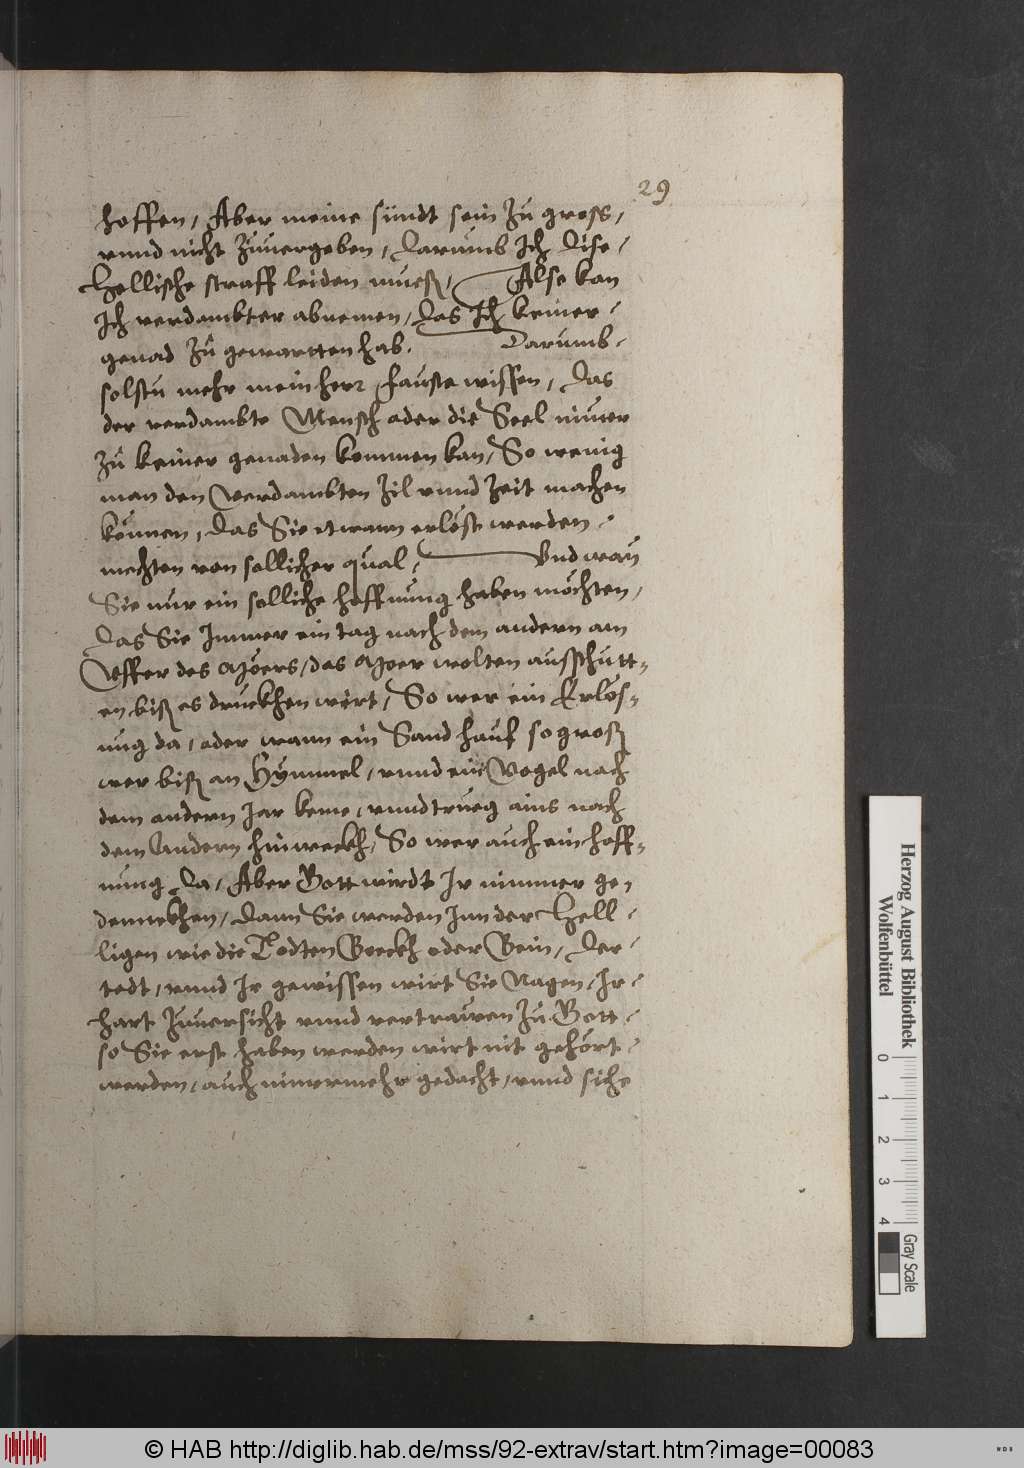 29
hoffen, Aber meine sündt sein zu gross,
vnnd nicht zuuergeben, darumb Ich dise
Hellische straff leiden mueß, Also kan
Ich verdambter abnemen, das Ich keiner
genad zu gewartten hab. Darumb
solstu mehr mein herr fauste wissen, das
der verdambte Mensch oder die Seel nimer
zu keiner genaden kommen kan, So wenig
man den Verdambten Zil vnnd Zeit machen
können, das Sie etwann erlöst werden
mechten von sollicher qual, Vnd wan
Sie nur ein solliche hoffnung haben möchten,
das Sie Immer ein tag nach dem andern am
Vffer des Moers, das Moer wolten aufschutt-
en biß es druckhen wirt, So wer ein Erlös-
ung da, oder wann ein Sand hauf so groß
wer biß an Hymmel, vnnd ein Vogel nach
dem andern Jar keme, vnnd trueg ains nach
dem Andern hinweckh, So wer auch ein hoff-
nung da, Aber Gott wirdt Ir nimmer ge
dennckhen, dann Sie werden Inn der Hell
ligen wie die Todten Boeckh oder Bein, der
todt, vnnd Ir gewissen wirt Sie Nagen, Ir
hart zuuersicht vnnd vertrawen zu Gott
so Sie erst haben werden wirt nit gehört
werden, auch nimermehr gedacht, vnnd siche
Herzog August Bibliothek
Wolfenbüttel
0 1 2 3 4
Gray Scale
© HAB http://diglib.hab.de/mss/92-extrav/start.htm?image=00083